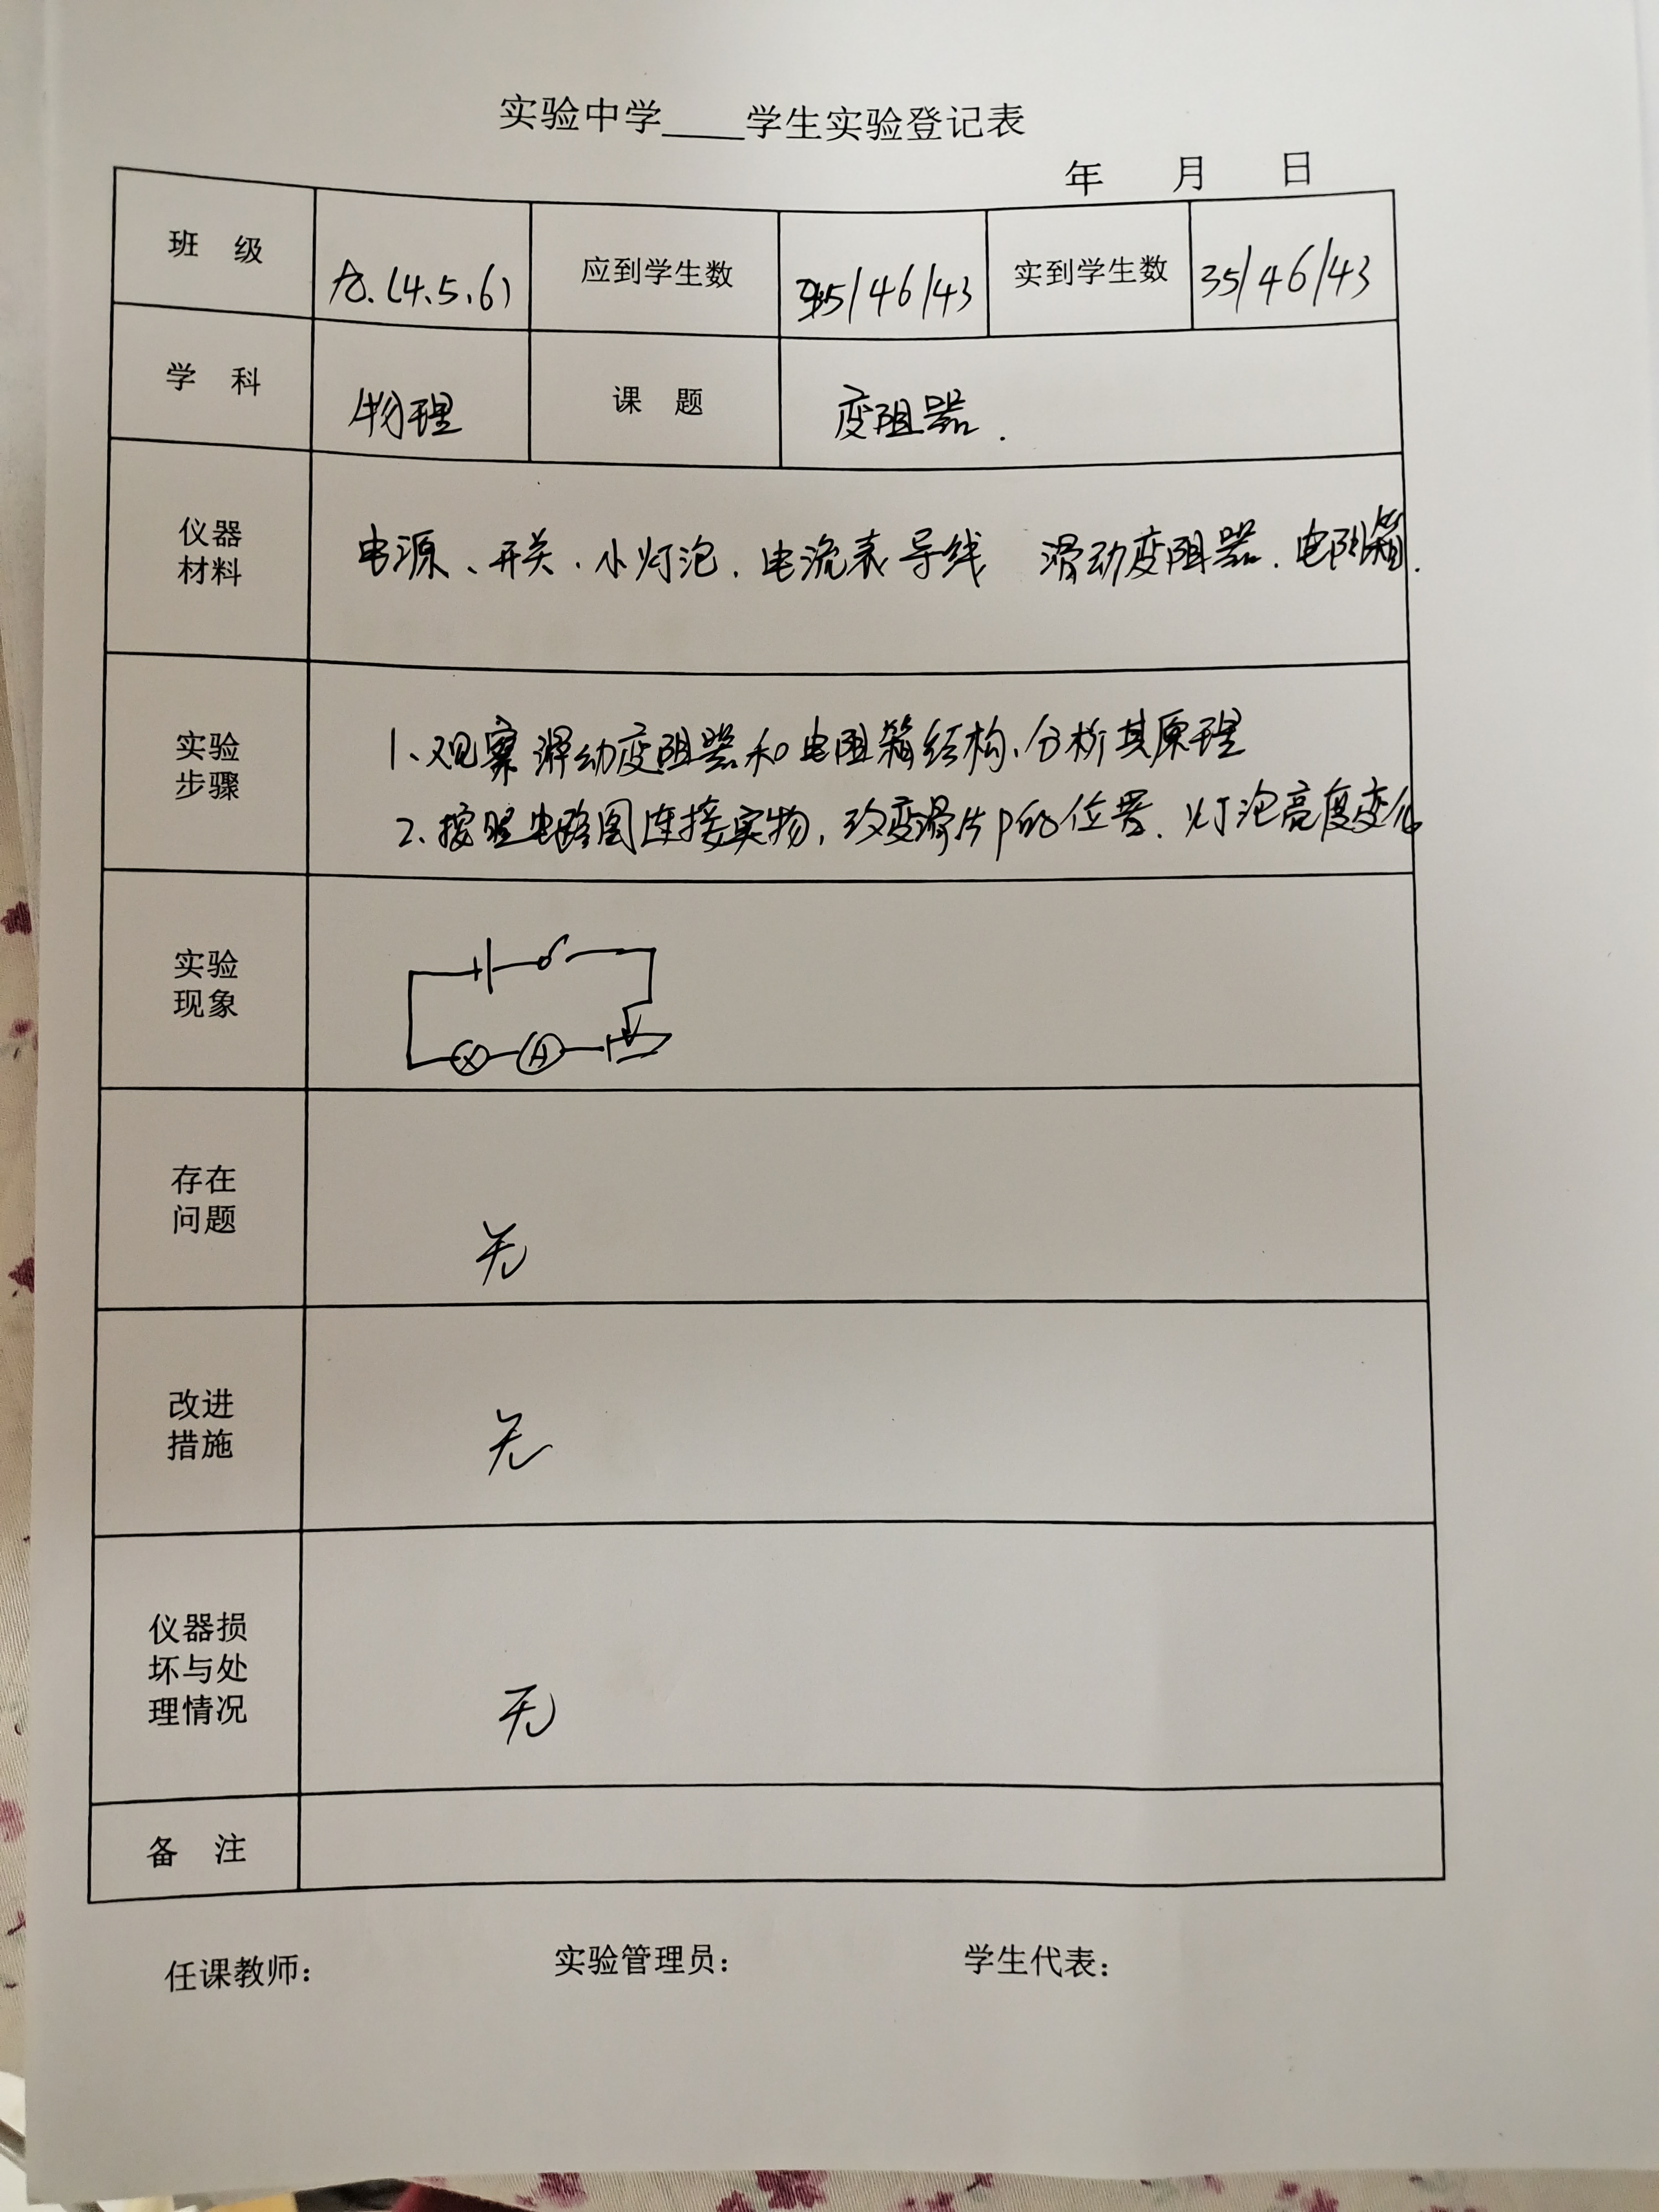 实验中学____学生实验登记表
年 月 日
班 级 九.(4.5.6) 应到学生数 35/46/43 实到学生数 35/46/43
学 科 物理 课 题 变阻器.
仪器
材料
电源、开关.小灯泡.电流表导线 滑动变阻器.电阻箱.
实验
步骤
1、观察滑动变阻器和电阻箱结构、分析其原理
2、按照电路图连接实物,改变滑片P的位置.灯泡亮度变化
实验
现象
A
存在
问题
无
改进
措施
无
仪器损
坏与处
理情况
无
备 注
任课教师: 实验管理员: 学生代表: